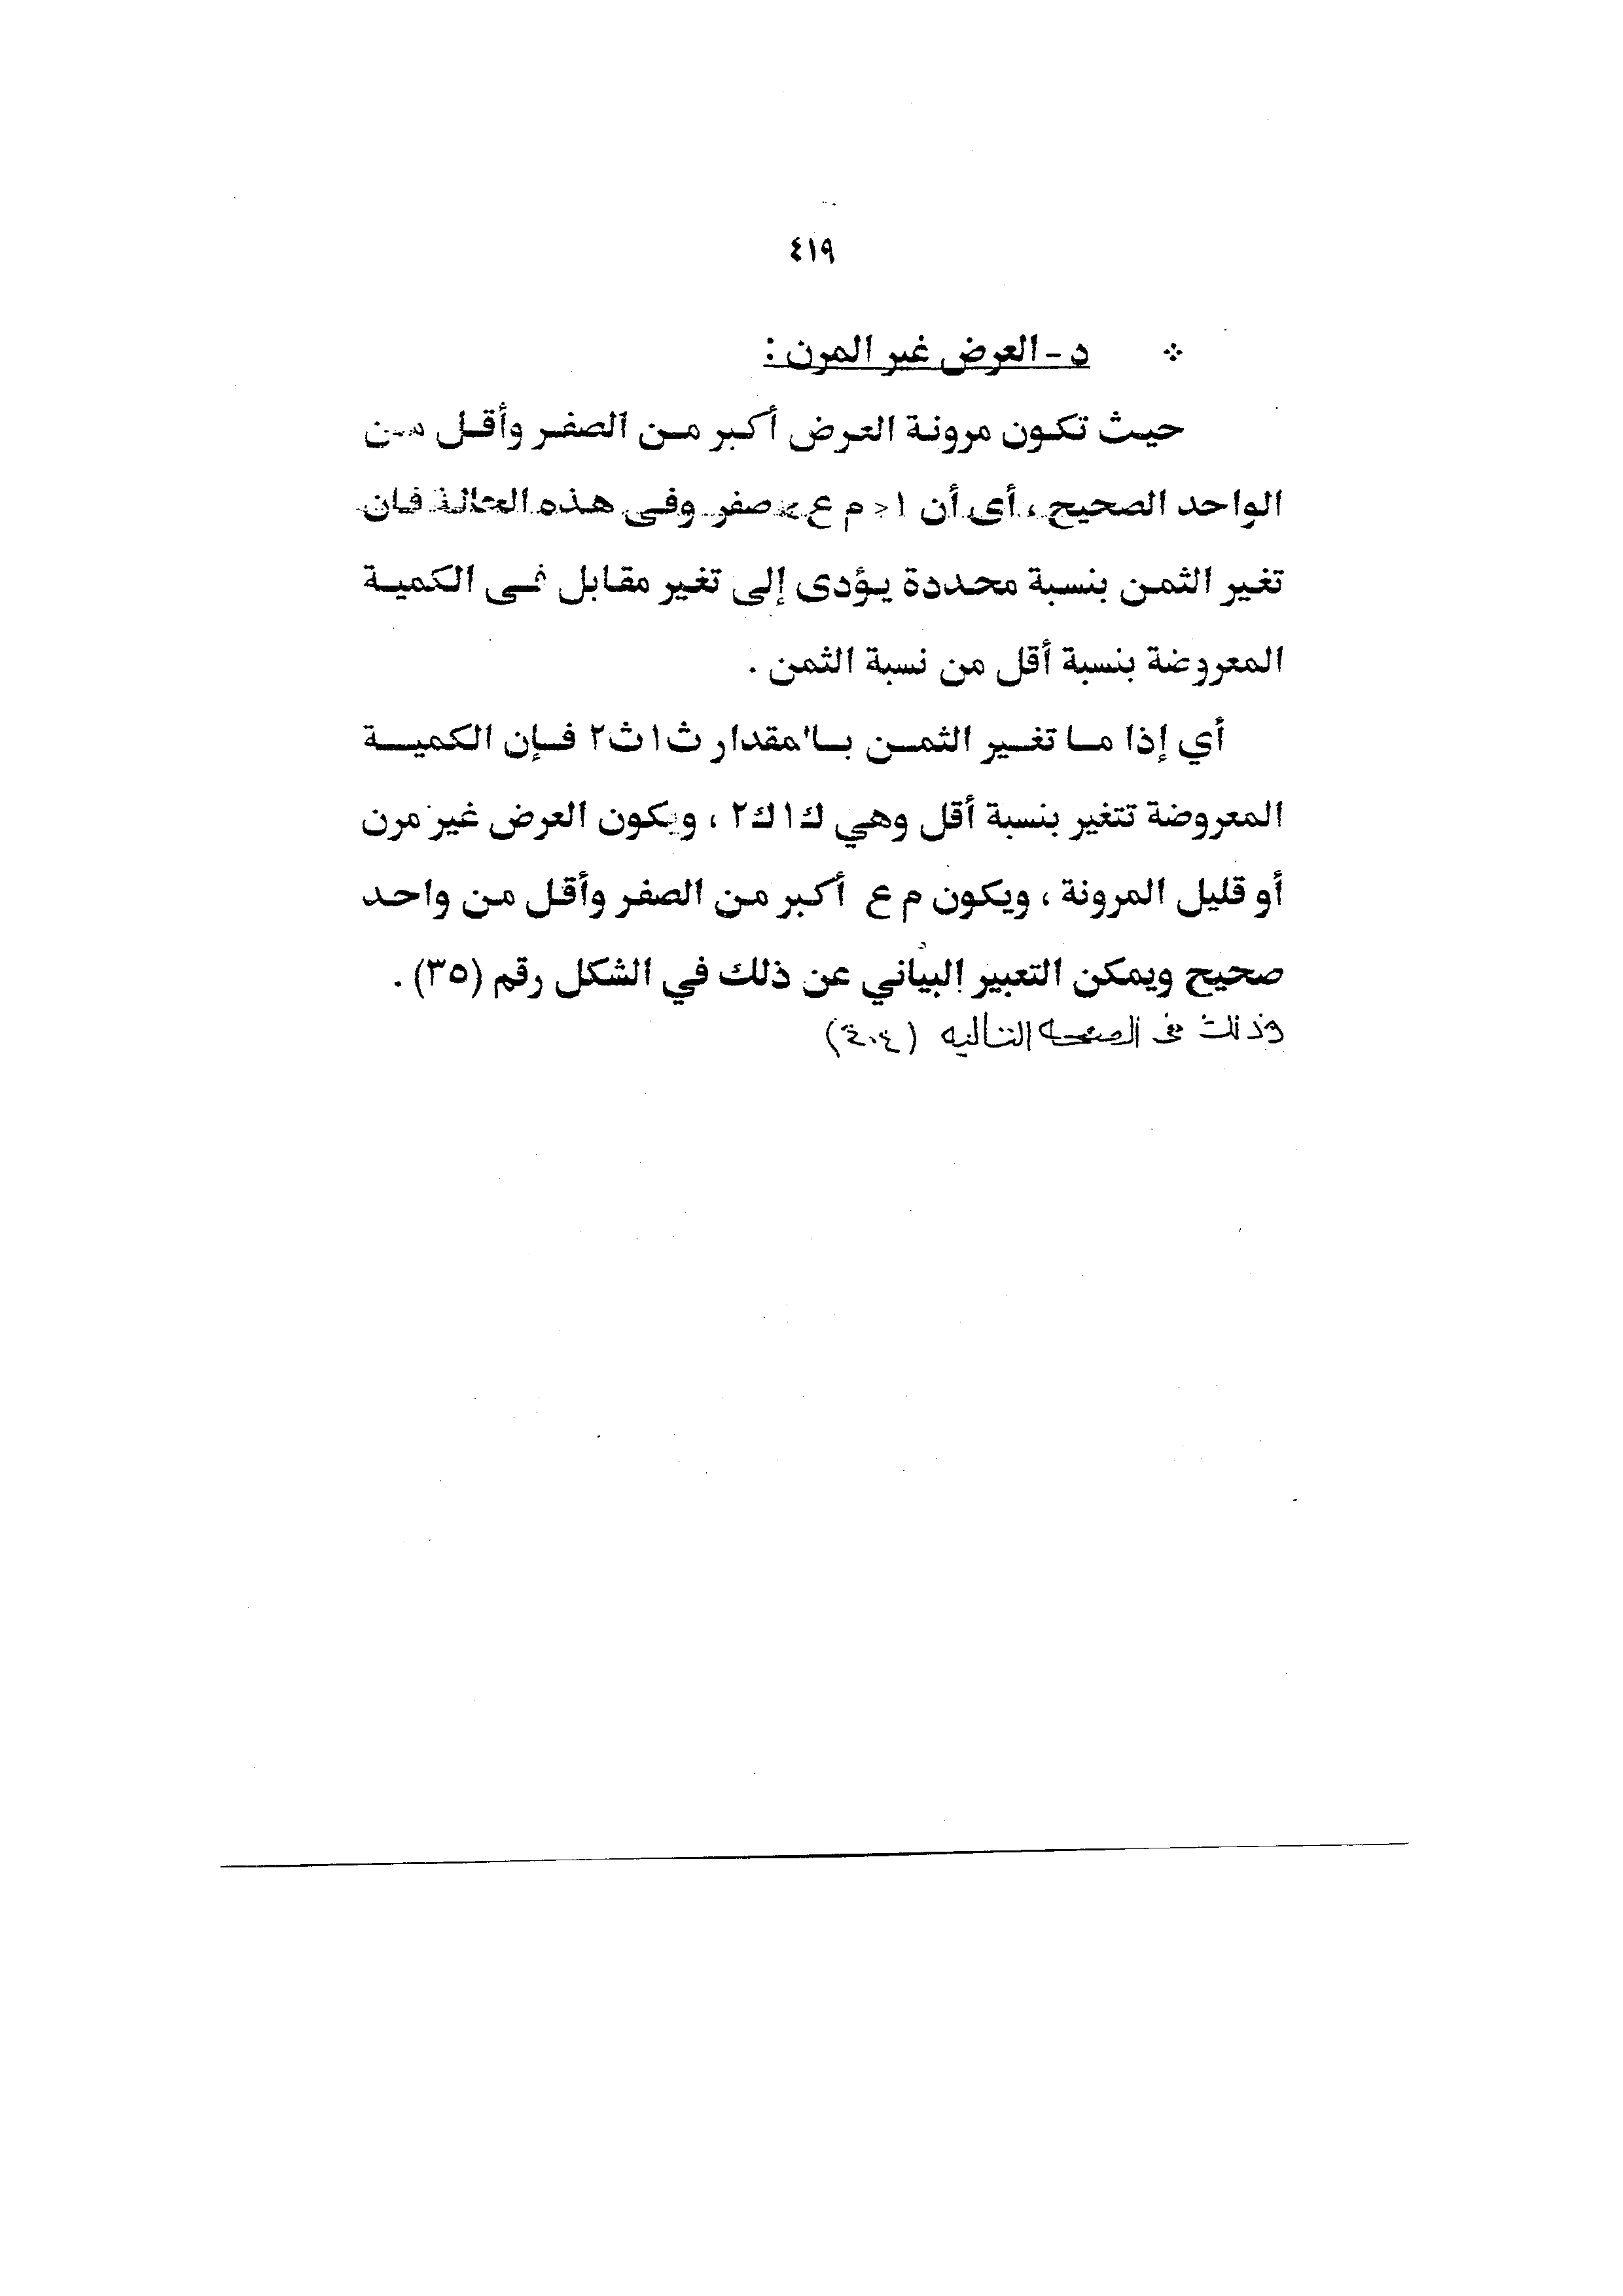 ٤١٩
د - العرض غير المرن :
حيث تكون مرونة العرض أكبر من الصفر وأقل من
الواحد الصحيح ، أى أن ١ < م ع > صفر وفى هذه الحالة فان
تغير الثمن بنسبة محددة يؤدى إلى تغير مقابل فى الكمية
المعروضة بنسبة أقل من نسبة الثمن .
أي إذا ما تغير الثمن بالمقدار ث١ ث٢ فإن الكمية
المعروضة تتغير بنسبة أقل وهي ك١ ك٢ ، ويكون العرض غير مرن
أو قليل المرونة ، ويكون م ع أكبر من الصفر وأقل من واحد
صحيح ويمكن التعبير البياني عن ذلك في الشكل رقم (٣٥) .
وذلك فى الصفحة التاليه